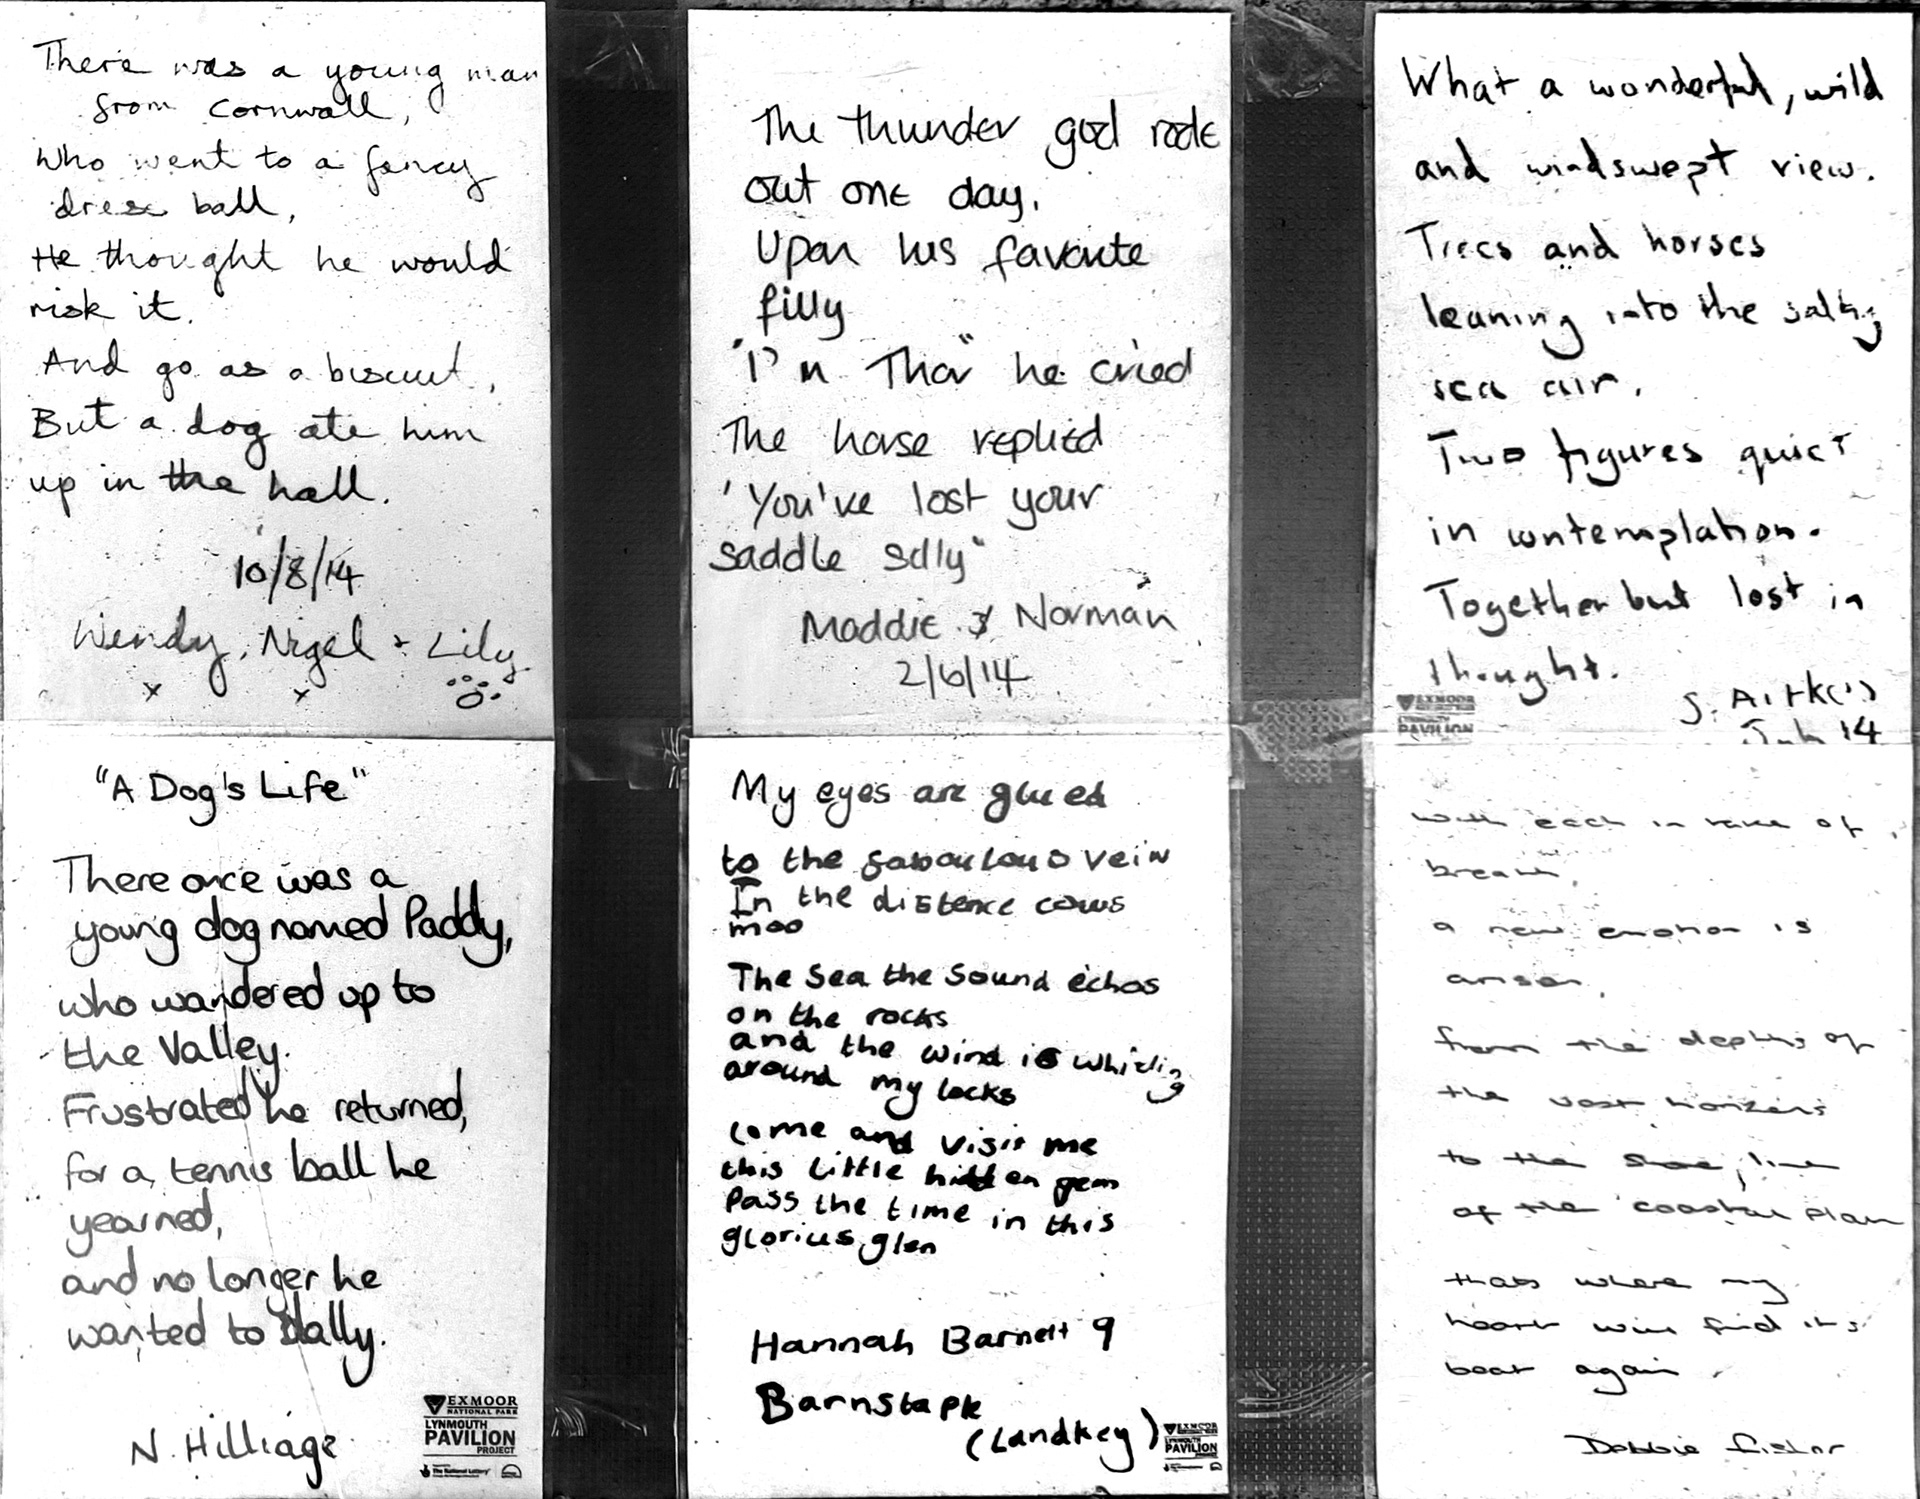 There was a young man
from Cornwall,
Who went to a fancy
dress ball,
He thought he would
risk it.
And go as a biscuit,
But a dog ate him
up in the hall.
10/8/14
Wendy, Nigel + Lily
x x
The thunder god rode
out one day,
Upon his favourite
filly
"I'm Thor" he cried
The horse replied
'You've lost your
saddle silly"
Maddie & Norman
2/6/14
What a wonderful, wild
and windswept view.
Trees and horses
leaning into the salty
sea air.
Two figures quiet
in contemplation.
Together but lost in
thought.
EXMOOR
LYNMOUTH
PAVILION
S. Aitk
July 14
"A Dog's Life"
There once was a
young dog named Paddy,
who wandered up to
the Valley.
Frustrated he returned,
for a tennis ball he
yearned,
and no longer he
wanted to dally.
N. Hilliage
EXMOOR
NATIONAL PARK
LYNMOUTH
PAVILION
PROJECT
The National Lottery
My eyes are glued
to the faboulous vein
In the distence cows
moo
The Sea the Sound echos
on the rocks
and the wind is whirling
around my locks
come and visit me
this little hidden gem
Pass the time in this
glorius glen
Hannah Barnett 9
Barnstaple
(Landkey)
EXMOOR
LYNMOUTH
PAVILION
with each in take of
breath,
a new emotion is
arisen,
from the depths of
the vast horizens
to the shoe line
of the coastal plain
thats where my
heart will find its
beat again
Debbie Fisher